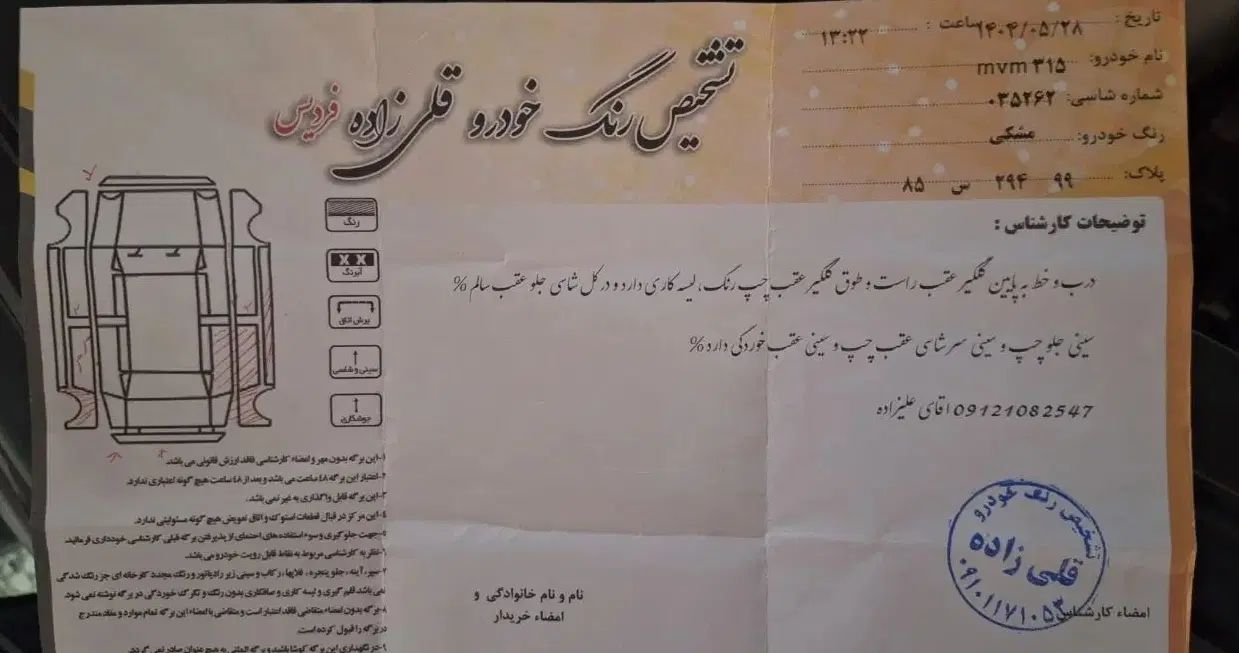 تاریخ: ۱۴۰۴/۰۵/۲۸ ساعت: ۱۳:۲۲
نام خودرو: mvm ۳۱۵
شماره شاسی: ۰۳۵۲۶۲
رنگ خودرو: مشکی
پلاک: ۹۹ ۲۹۴ س ۸۵
تشخیص رنگ خودرو قلی زاده فردیس
توضیحات کارشناس :
درب و خط به پایین گلگیر عقب راست و طوق گلگیر عقب چپ رنگ، لیسه کاری دارد و در کل شاسی جلو عقب سالم %
سینی جلو چپ و سینی سرشاسی عقب چپ و سینی عقب خوردگی دارد %
09121082547 اقای علیزاده
رنگ
X X
آبرنگ
برش اتاق
سینی و شاسی
جوشکاری
۱-این برگه بدون مهر و امضاء کارشناسی فاقد ارزش قانونی می باشد.
۲-اعتبار این برگه ۴۸ ساعت می باشد و بعد از ۴۸ ساعت هیچ گونه اعتباری ندارد.
۳-این برگه قابل واگذاری به غیر نمی باشد.
۴-این مرکز در قبال قطعات استوک و اتاق تعویض هیچ گونه مسئولیتی ندارد.
۵-جهت جلوگیری و سوء استفاده های احتمالی از پذیرفتن برگه قبلی کارشناسی خودداری فرمائید.
۶-نظر به کارشناسی مربوط به نقاط قابل رویت خودرو می باشد.
۷-سپر، آینه، جلو پنجره، فلاپها، رکاب و سینی زیر رادیاتور و رنگ مجدد کارخانه ای جز رنگ شدگی
نمی باشد قلم گیری و لیسه کاری و صافکاری بدون رنگ و تگرگ خوردگی در برگه نوشته نمی شود.
۸-برگه بدون امضاء متقاضی فاقد اعتبار است و متقاضی با امضاء این برگه تمام موارد و مفاد مندرج
در برگه را قبول کرده است.
۹-در نگهداری این برگه کوشا باشید و برگه المثنی به هیچ عنوان صادر نمی گردد.
نام و نام خانوادگی و
امضاء خریدار
امضاء کارشناس
تشخیص رنگ خودرو
قلی زاده
۰۹۱۰۱۱۷۱۰۵۳